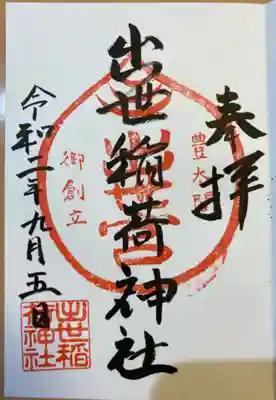 奉拝
豊太閤
出世稲荷神社
御創立
令和二年九月五日
出世稲
荷神社